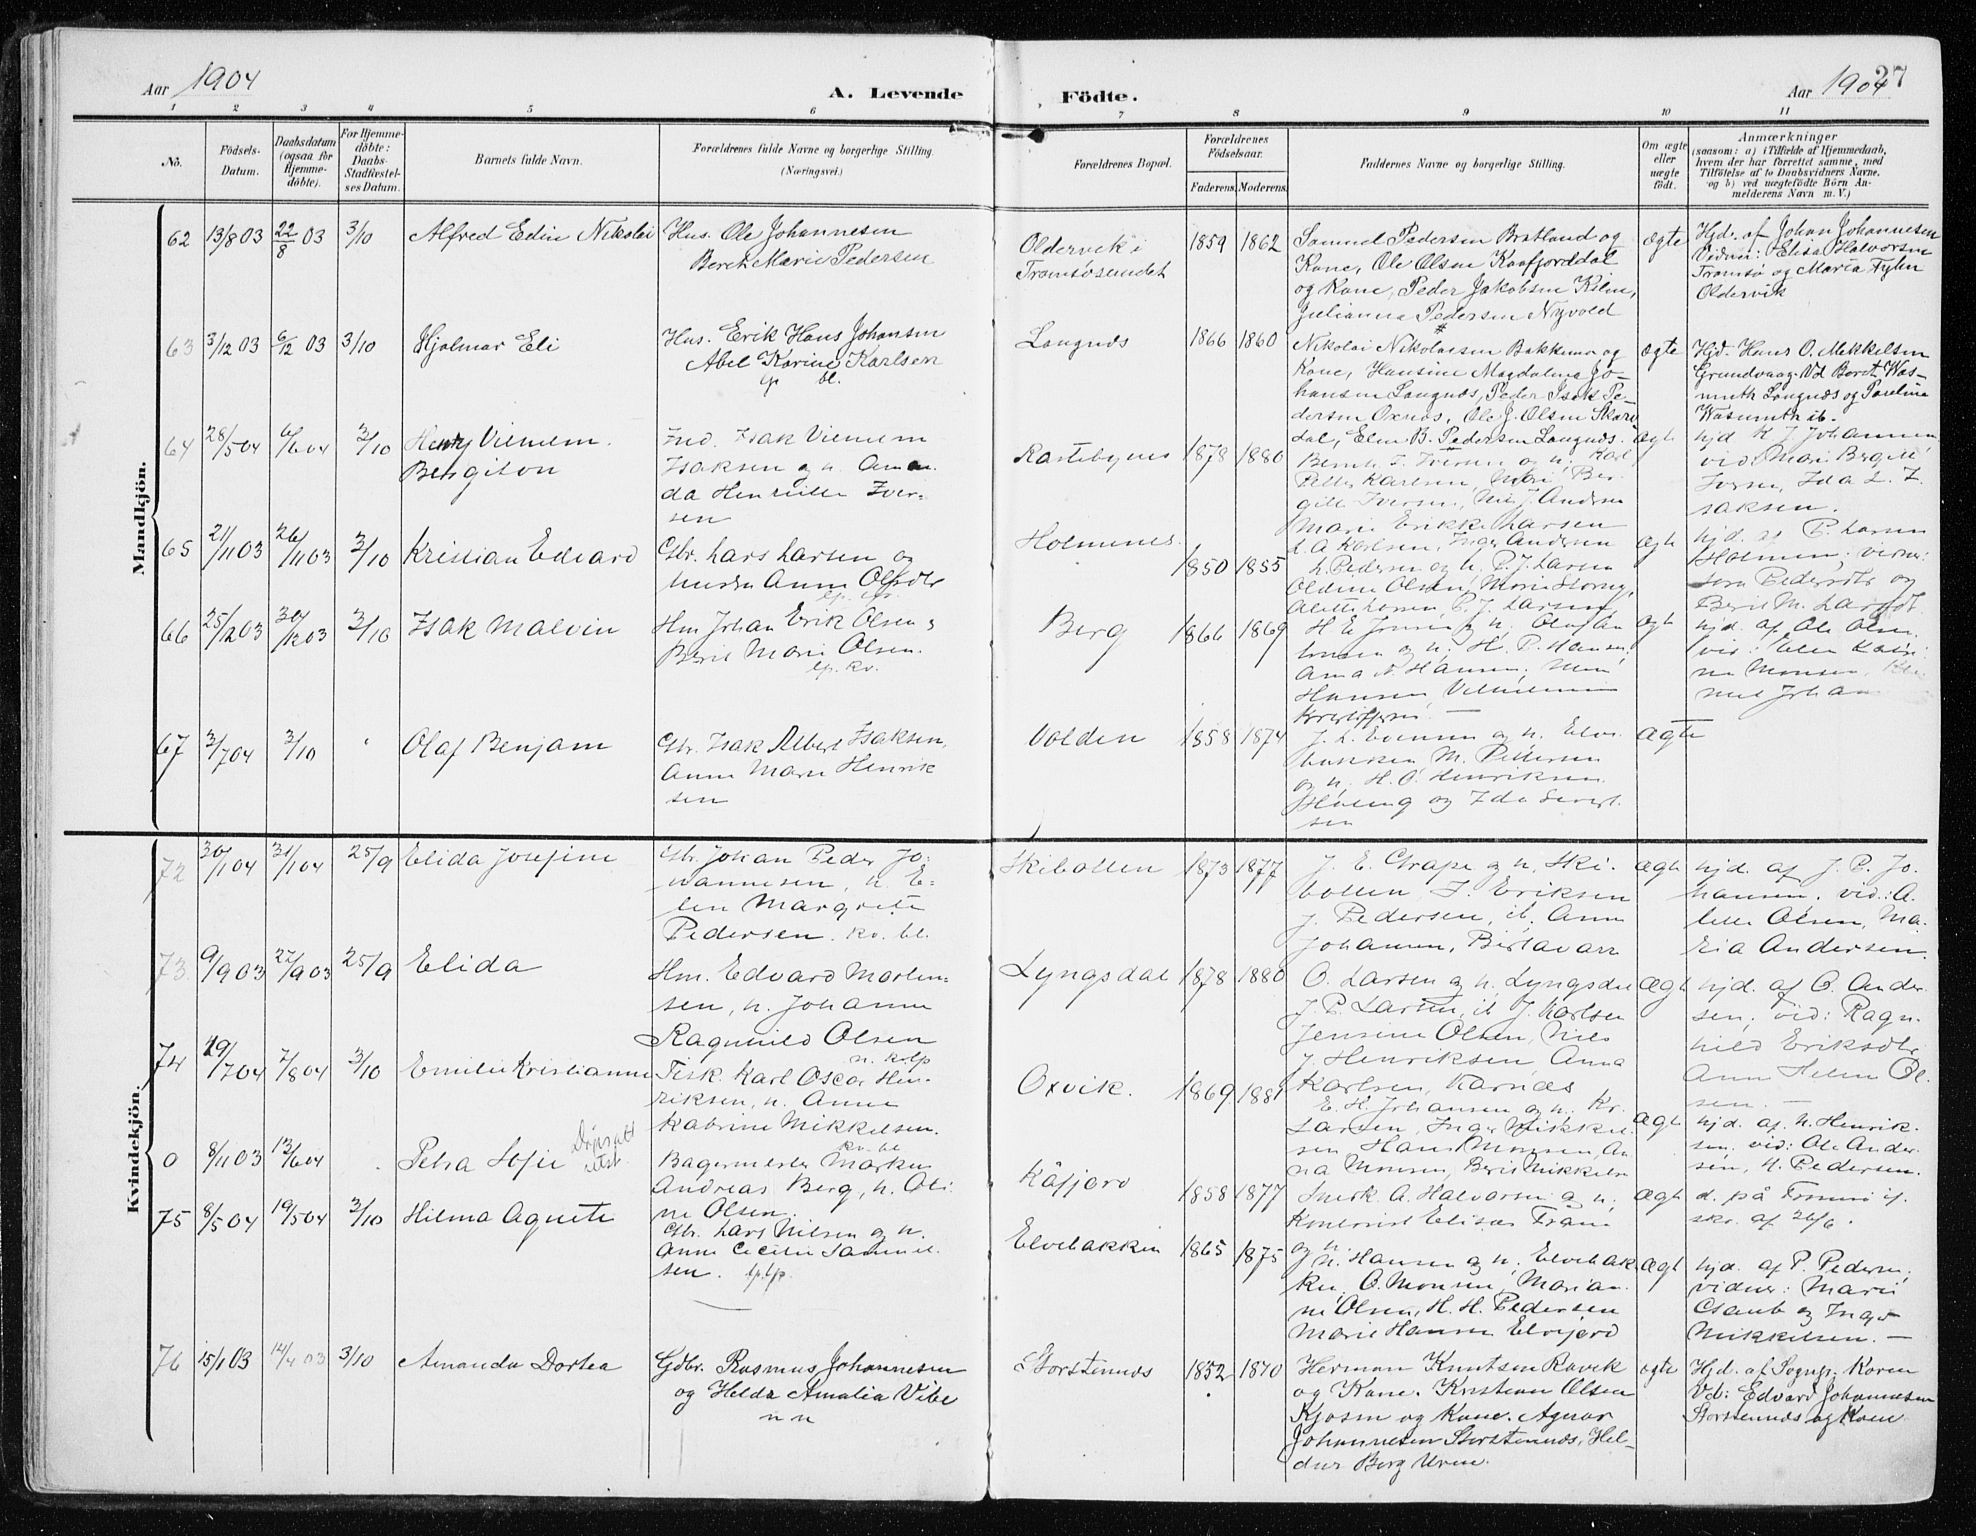 Aar 1904
A. Levende
Födte.
Aar 1904
27
1 2 3 4 5 6 7 8 9 10 11
No.
Födsels-
Datum.
Daabsdatum
(ogsaa for
Hjemme-
döbte).
For Hjemme-
döbte:
Daabs-
Stadfæstel-
ses Datum.
Barnets fulde Navn.
Forældrenes fulde Navne og borgerlige Stilling.
(Næringsvei.)
Forældrenes Bopæl.
Forældrenes
Födselsaar.
Faderens. Moderens.
Faddernes Navne og borgerlige Stilling.
Om ægte
eller
uægte
födt.
Anmærkninger
(saasom: a) i Tilfælde af Hjemmedaab,
hvem der har forrettet samme, med
Tilföielse af to Daabsvidners Navne,
og b) ved uægtefödte Börn An-
melderens Navn m. V.)
Mandkjön.
62 13/8 03 22/8 03 3/10 Alfred Edin Nikolai
Hus. Ole Johannesen
Beret Marie Pedersen
Oldervik i
Tromsøsundet
1859 1862
Samuel Pedersen Bratland og
Kone, Ole Olsen Kaafjorddal
og Kone, Peder Jakobsen Kilen,
Julianna Pedersen Nyvold
ægte
Hjd. af Johan Johannesen
Vidner: Elisa Halvorsen
Tromsø og Maria
Oldervik
63 3/12 03 6/12 03 3/10 Hjalmar Eli
Hus. Erik Hans Johansen
Abel Karine Karlsen
lp bl.
Langnds
1866 1860
Nikolai Nikolaisen Bakkemo og
Kone, Hansine Magdalena Jo-
hansen Langnds, Peder Isak Pe-
dersen Oxnds, Ole J. Olsen Skar
dal, Elen B. Pedersen Langnds.
ægte
Hjd. Hans O. Mikkelsen
Grundvaag. Vd Berit Was-
muth Langnds og Paulina
Wasmuth ib.
64 28/5 04 6/6 04 3/10 Henry Vilhelm
Bergiton
Ind. Isak Vilhelm
Isaksen og h. Aman
da Henriette Iver-
sen
Rastebynes
1878 1880
Bernh. I. Iversen og h, Karl
Petter Karlsen, Mari Ber-
gitte Iversen, J. Andersen
Marie Erikke Larsen
ægte
hjd K J Johannsen
vid: Mari Bergite
Iversen, Ida L. I
saksen.
65 21/11 03 26/11 03 3/10 Kristian Edvard
Gbr. Lars Larsen og
hustru Anne Olsdtr
Holmenes.
1850 1855
L. A Karlsen, Inger Andersen
L. Pedersen og h. P. J. Larsen
Oldine Olsen, Marie
Alette Larsen P. J. Larsen
ægte
hjd. af P. Larsen
Holmen; vidner:
Sara Pedersdtr og
Berit M. Larsdt.
66 25/12 03 30/12 03 3/10 Isak Malvin
Hm Johan Erik Olsen &
Berit Marie Olsen.
lp. kv.
Berg
1866 1869
H E Jensen og h. Olaf An
tonsen og h. H. P. Hansen,
Anna A Hansen,
Hansen, Vilhelmine
Kristoffersen. —
ægte
hjd. af Ole Olsen.
vid: Elen Katri
ne Monsen,
Johan
67 3/7 04 3/10 Olaf Benjam
Gbr. Isak Albert Isaksen,
Anne Marie Henrik
sen
Volden
1858 1874
J. L. Evensen og h. Elve
bakken M. Pettersen
og h, H. O. Henriksen
og Ida Sivert
sen
Ægte
Kvindekjön.
72 30/1 04 31/1 04 25/9 Elida Josefine
Gbr. Johan Peder Jo-
hannesen, h. E-
len Margrete
Pedersen. kv. bl.
Skibotten
1873 1877
J. E. Grape og h, Ski-
botten, I. Eriksen
J. Pedersen, ib. Anne
Johansen, Birtavarre
Ægte
hjd. af J. P. Jo-
hansen, vid: A-
lette Olsen, Ma-
ria Andersen.
73. 9/9 03 27/9 03 25/9 Elida
Hm. Edvard Morten-
sen, h. Johanne
Ragnhild Olsen
n. k. lp
Lyngsdal
1878 1880
O. Larsen og h, Lyngsdal
J. P. Larsen, ib J. Karlsen
Jensine Olsen, Nils
J Henriksen Anna
Karlsen, Karnæs
Ægte
hjd. af O. Ander
sen; vid: Ragn-
hild Eriksdtr
Anne Helene Ol-
sen. —
74 19/7 04 7/8 04 3/10 Emilie Kristianne
Fisk. Karl Oscar Hen-
riksen, h. Anne
Katrine Mikkelsen.
kv. bl
Oxvik.
1869 1881
E. H. Johansen og h. Kr.
Larsen, Inger Mikkel
sen Hans Monsen, An-
na Monsen, Berit Mikkelsen
ægte
hjd. af H. Henrik-
sen. vid: Ole Ander-
sen, H. Pedersen.
0 8/11 03 12/6 04 Petra Sofie
Bagermester Markus
Andreas Berg, h. Oli
ne Olsen.
Kåfjord
1858 1877
Snedk A. Halvorsen og h,
Kontorist
og h.
ægte
d. på Tromsø if.
skr. af 26/6.
75 8/5 04 19/5 04 3/10 Hilma Agnete
Gbr. Lars Nilsen og h.
Anne Cecilie Samuel-
sen. lp. lp.
Elvebakken
1865 1875
H. Hansen og h, Elvebak
ken, O. Monsen, Marian-
ne Olsen, H. H. Pedersen
Marie Hansen Elvejord
Ægte
hjd. af P. Pedersen,
vidner: Marie
og Inger
Mikkelsen. —
76 15/1 03 3/10 Amanda Dortea
Gdbr. Rasmus Johannesen
og Helda Amalia Vibe
n n
Storstennds
1852 1870
Herman Knutsen Ravik
og Kone. Kristian Olsen
Kjosen og Kone. Agnar
Johannesen Storstennds, Hel-
dur Berg Uren.
ægte
Hjd. af Sognepr. Koren
Vd: Edvard Johannesen
Storstennds og Kone.